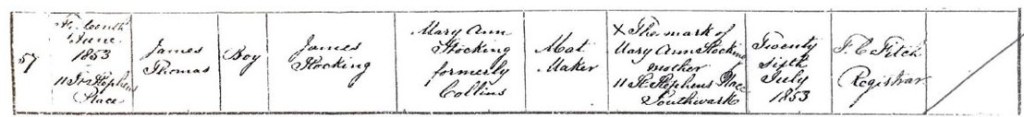 57
Fifteenth
June
1853
11 St Stephens
Place
James
Thomas
Boy
James
Hocking
Mary Ann
Hocking
formerly
Collins
Mat
Maker
X The mark of
Mary Ann Hocking
mother
11 St Stephens Place
Southwark
Twenty
Sixth
July
1853
F. C. Fitch
Registrar